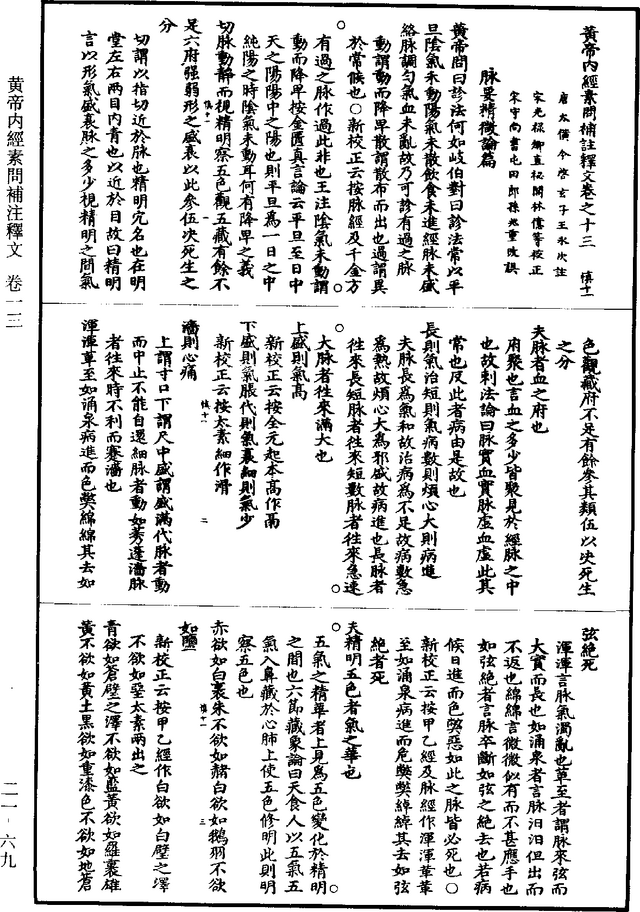 黃帝內經素問補註釋文卷之十三　慎十一
唐太僕令啓玄子王冰次註
宋光祿卿直祕閣林億等校正
宋守尚書屯田郎孫兆重改誤
脉要精微論篇
黃帝問曰診法何如岐伯對曰診法常以平
旦陰氣未動陽氣未散飲食未進經脉未盛
絡脉調勻氣血未亂故乃可診有過之脉
動謂動而降卑散謂散布而出也過謂異
於常候也○新校正云按脉經及千金方
有過之脉作過此非也王注陰氣未動謂
動而降卑按金匱真言論云平旦至日中
天之陽陽中之陽也則平旦爲一日之中
純陽之時陰氣未動耳何有降卑之義
切脉動靜而視精明察五色觀五藏有餘不
足六府强弱形之盛衰以此參伍决死生之
分
切謂以指切近於脉也精明穴名也在明
堂左右兩目內眥也以近於目故曰精明
言以形氣盛衰脉之多少視精明之間氣
色觀藏府不足有餘參其類伍以决死生
之分
夫脉者血之府也
府聚也言血之多少皆聚見於經脉之中
也故刺法論曰脉實血實脉虛血虛此其
常也反此者病由是故也
長則氣治短則氣病數則煩心大則病進
夫脉長爲氣和故治病爲不足故病數急
爲熱故煩心大爲邪盛故病進也長脉者
往來長短脉者往來短數脉者往來急速
大脉者往來滿大也
上盛則氣高
新校正云按全元起本高作鬲
下盛則氣脹代則氣衰細則氣少
新校正云按太素細作滑
濇則心痛
上謂寸口下謂尺中盛謂盛滿代脉者動
而中止不能自還細脉者動如莠蓬濇脉
者往來時不利而蹇濇也
渾渾革至如涌泉病進而色獘綿綿其去如
弦絕死
渾渾言脉氣濁亂也革至者謂脉來弦而
大實而長也如涌泉者言脉汩汩但出而
不返也綿綿言微微似有而不甚應手也
如弦絕者言脉卒斷如弦之絕去也若病
候日進而色獘惡如此之脉皆必死也○
新校正云按甲乙經及脉經作渾渾革革
至如涌泉病進而危獘獘綽綽其去如弦
絕者死
夫精明五色者氣之華也
五氣之精華者上見爲五色變化於精明
之間也六節藏象論曰天食人以五氣五
氣入鼻藏於心肺上使五色修明此則明
察五色也
赤欲如白裹朱不欲如赭白欲如鵝羽不欲
如鹽
新校正云按甲乙經作白欲如白璧之澤
不欲如堊太素兩出之
青欲如蒼璧之澤不欲如藍黃欲如羅裹雄
黃不欲如黃土黑欲如重漆色不欲如地蒼
慎十一　一
慎十一　二
慎十一　三
黃帝內經素問補注釋文　卷一三
二一·六九